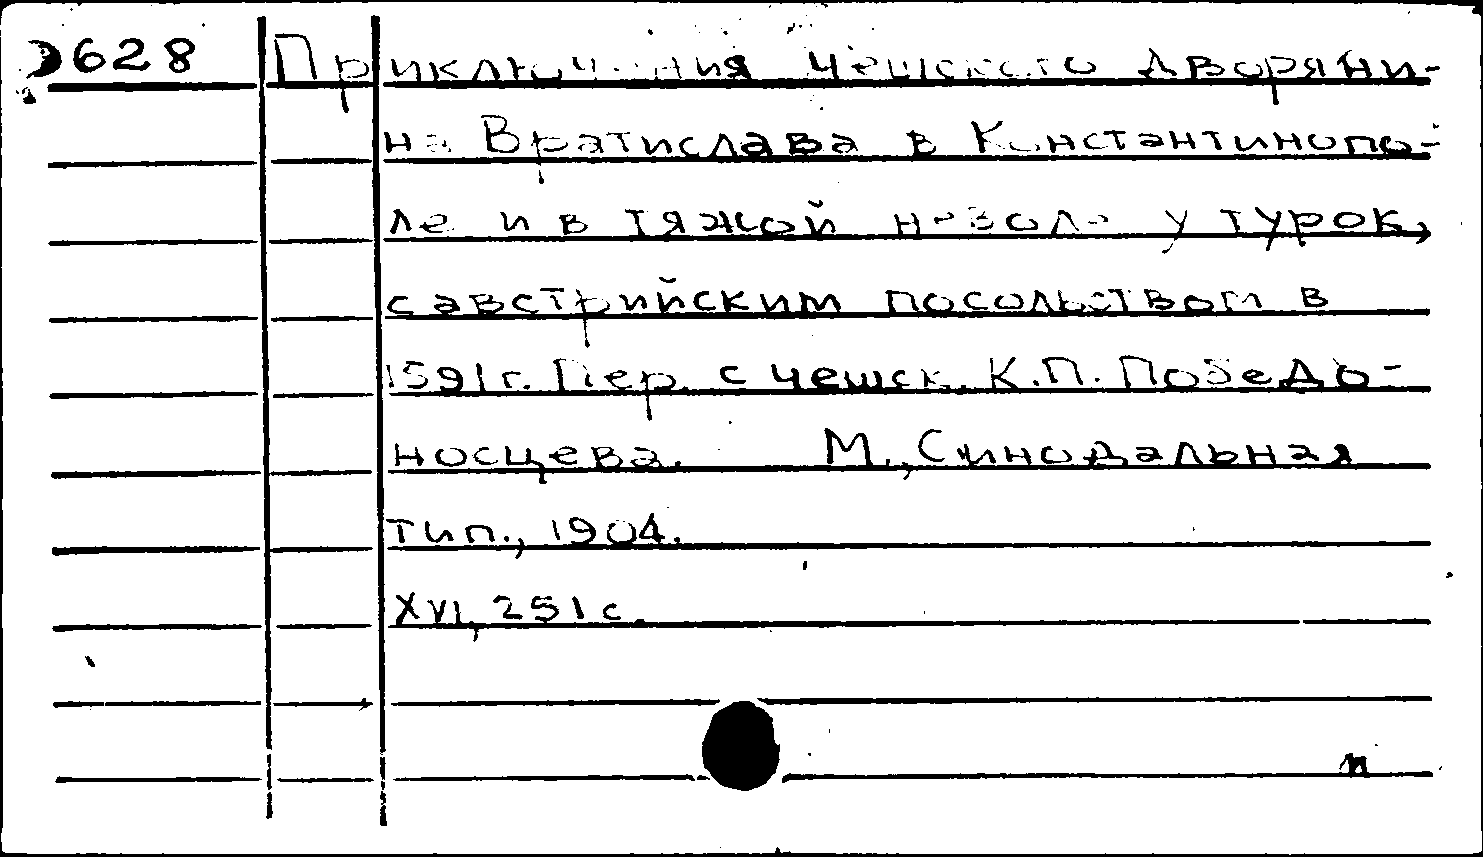 Э628 Приключения чешского дворяни-
на Вратислава в Константинопо-
ле и в тяжой неволе у турок,
с австрийским посольством в
1591 г. Пер. с чешск. К.П. Победо-
носцева. М., Синодальная
тип., 1904.
XVI, 251 с.
п